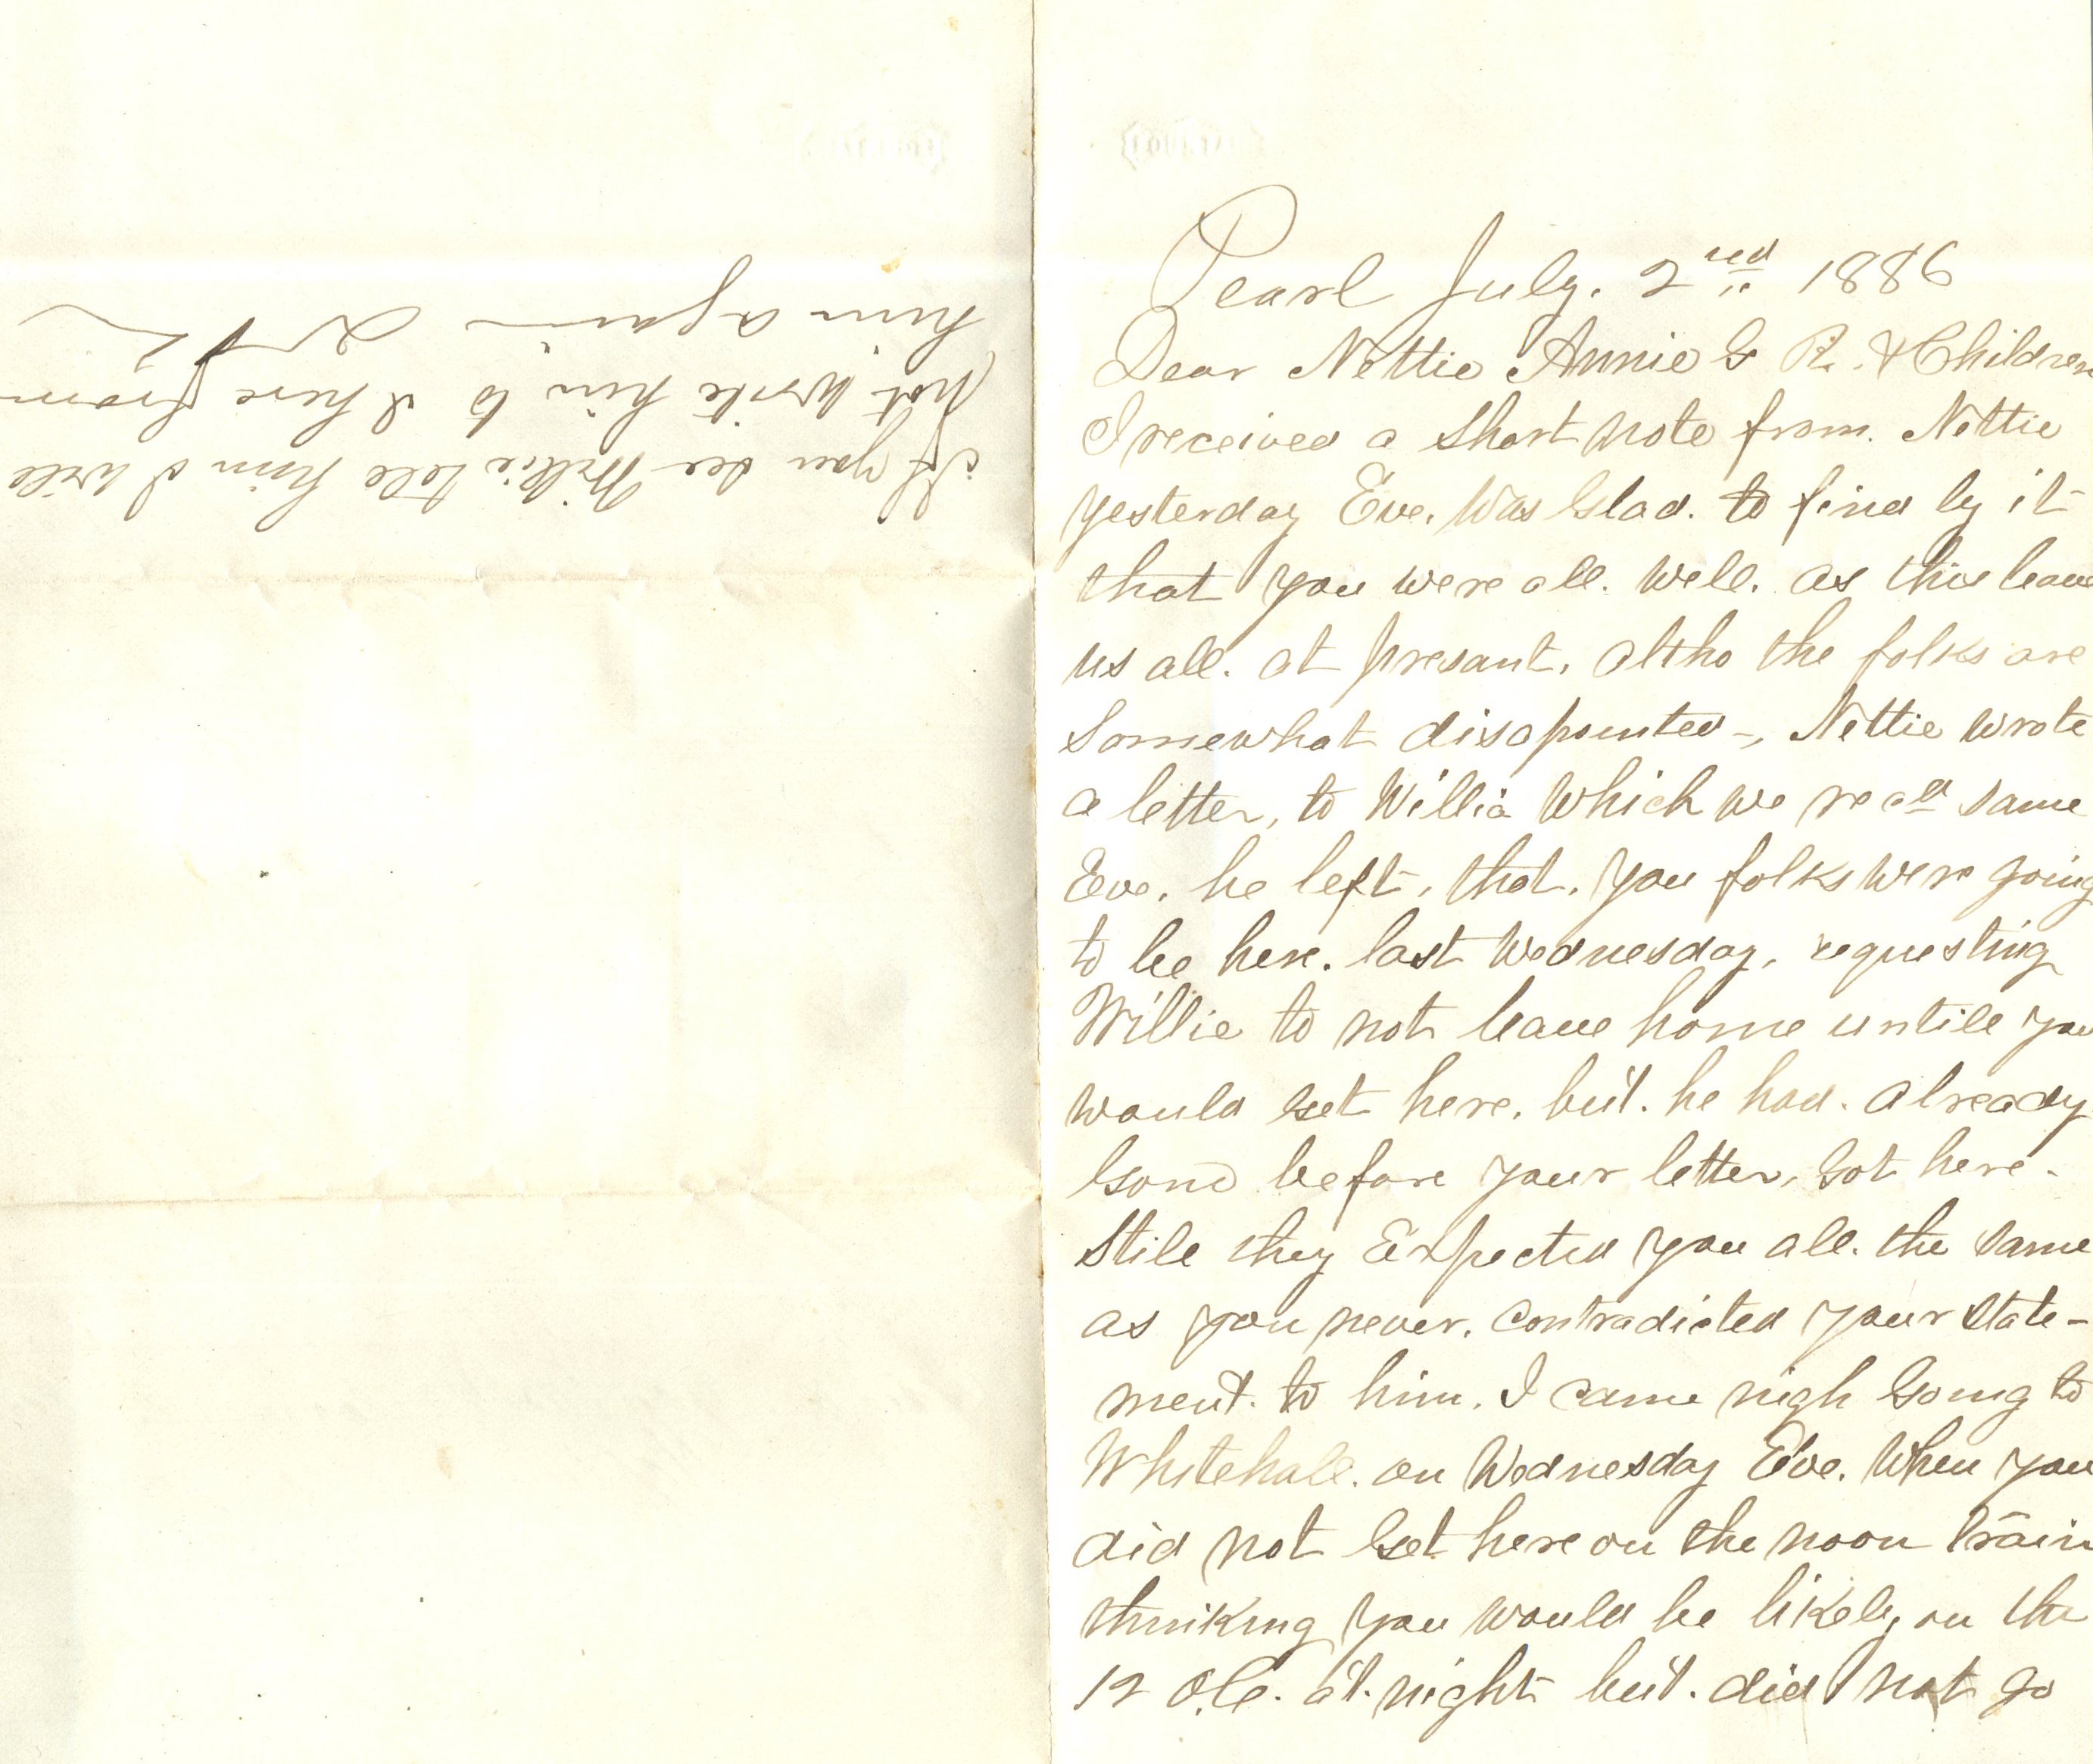 Pearl July. 2ned 1886
Dear Nettie Annie G R. & Children
I received a short note from. Nettie
yesterday Eve. Was Glad. to find by it
that you were all. well. as this leave
us all. at presant. altho the folks are
Somewhat disapointed -, Nettie wrote
a letter, to Willie which we recd same
Eve. he left. that. you folks were going
to be here. last Wednesday, requesting
Willie to not leave home untile you
would Get here. but. he had. already
Gone before your letter, Got here.
Stile they Expected you all. the same
as you never. contradicted your state-
ment. to him. I came nigh Going to
Whitehall. on Wednesday Eve. When you
did not Get here on the noon train
thinking you would be likely on the
12 O.C. at. night but. did not go
If you see Willie tell him I will
not write him to I here from
him again